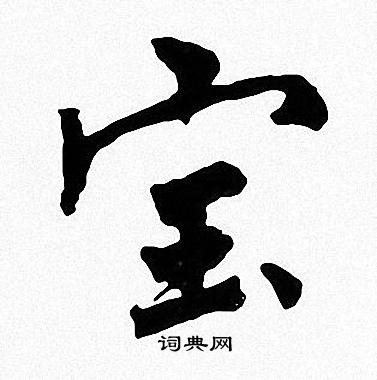 宝
词典网